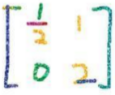 [1/2 1
0 2]